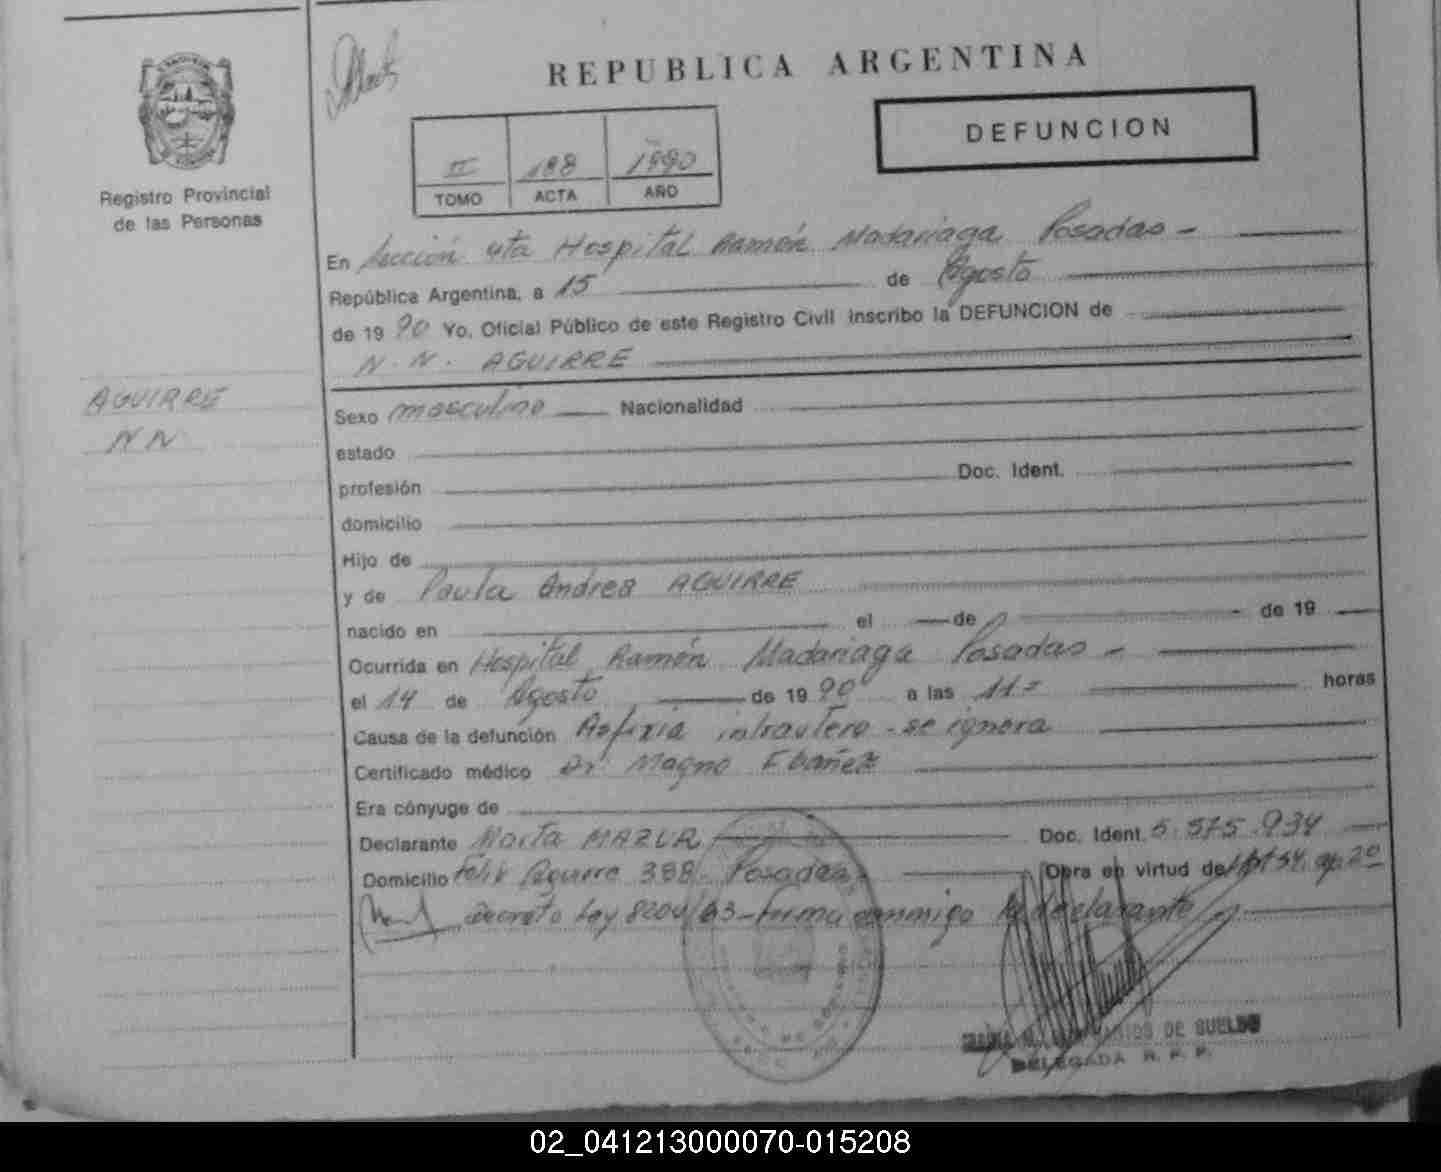 REPUBLICA ARGENTINA
DEFUNCION
II 188 1990
TOMO ACTA AÑO
Registro Provincial
de las Personas
En Sección 4ta Hospital Ramón Madariaga Posadas -
República Argentina, a 15 de Agosto
de 1990 Yo, Oficial Público de este Registro Civil inscribo la DEFUNCION de
N. N. AGUIRRE
AGUIRRE
N N
Sexo masculino Nacionalidad
estado
profesión Doc. Ident.
domicilio
Hijo de
y de Paula Andrea AGUIRRE
nacido en el de de 19
Ocurrida en Hospital Ramón Madariaga Posadas -
el 14 de Agosto de 1990 a las 11= horas
Causa de la defunción Asfixia intrautero - se ignora
Certificado médico Dr. Magno Ebañez
Era cónyuge de
Declarante Marta MAZUR Doc. Ident. 5.575.934
Domicilio Felix Aguirre 388 - Posadas Obra en virtud de Art 54, ap. 2º
Decreto Ley 8204/63 - firma conmigo la declarante
DE SUELDO
DELEGADA R. P. P.
02_041213000070-015208